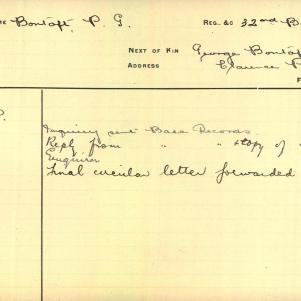 Bontoft, P. G.
REG. &C 32nd B
NEXT OF KIN George Bontof
ADDRESS Clarence P
Inquiry sent Base Records.
Reply from " " & copy of
Enquirer
Final circular letter forwarded